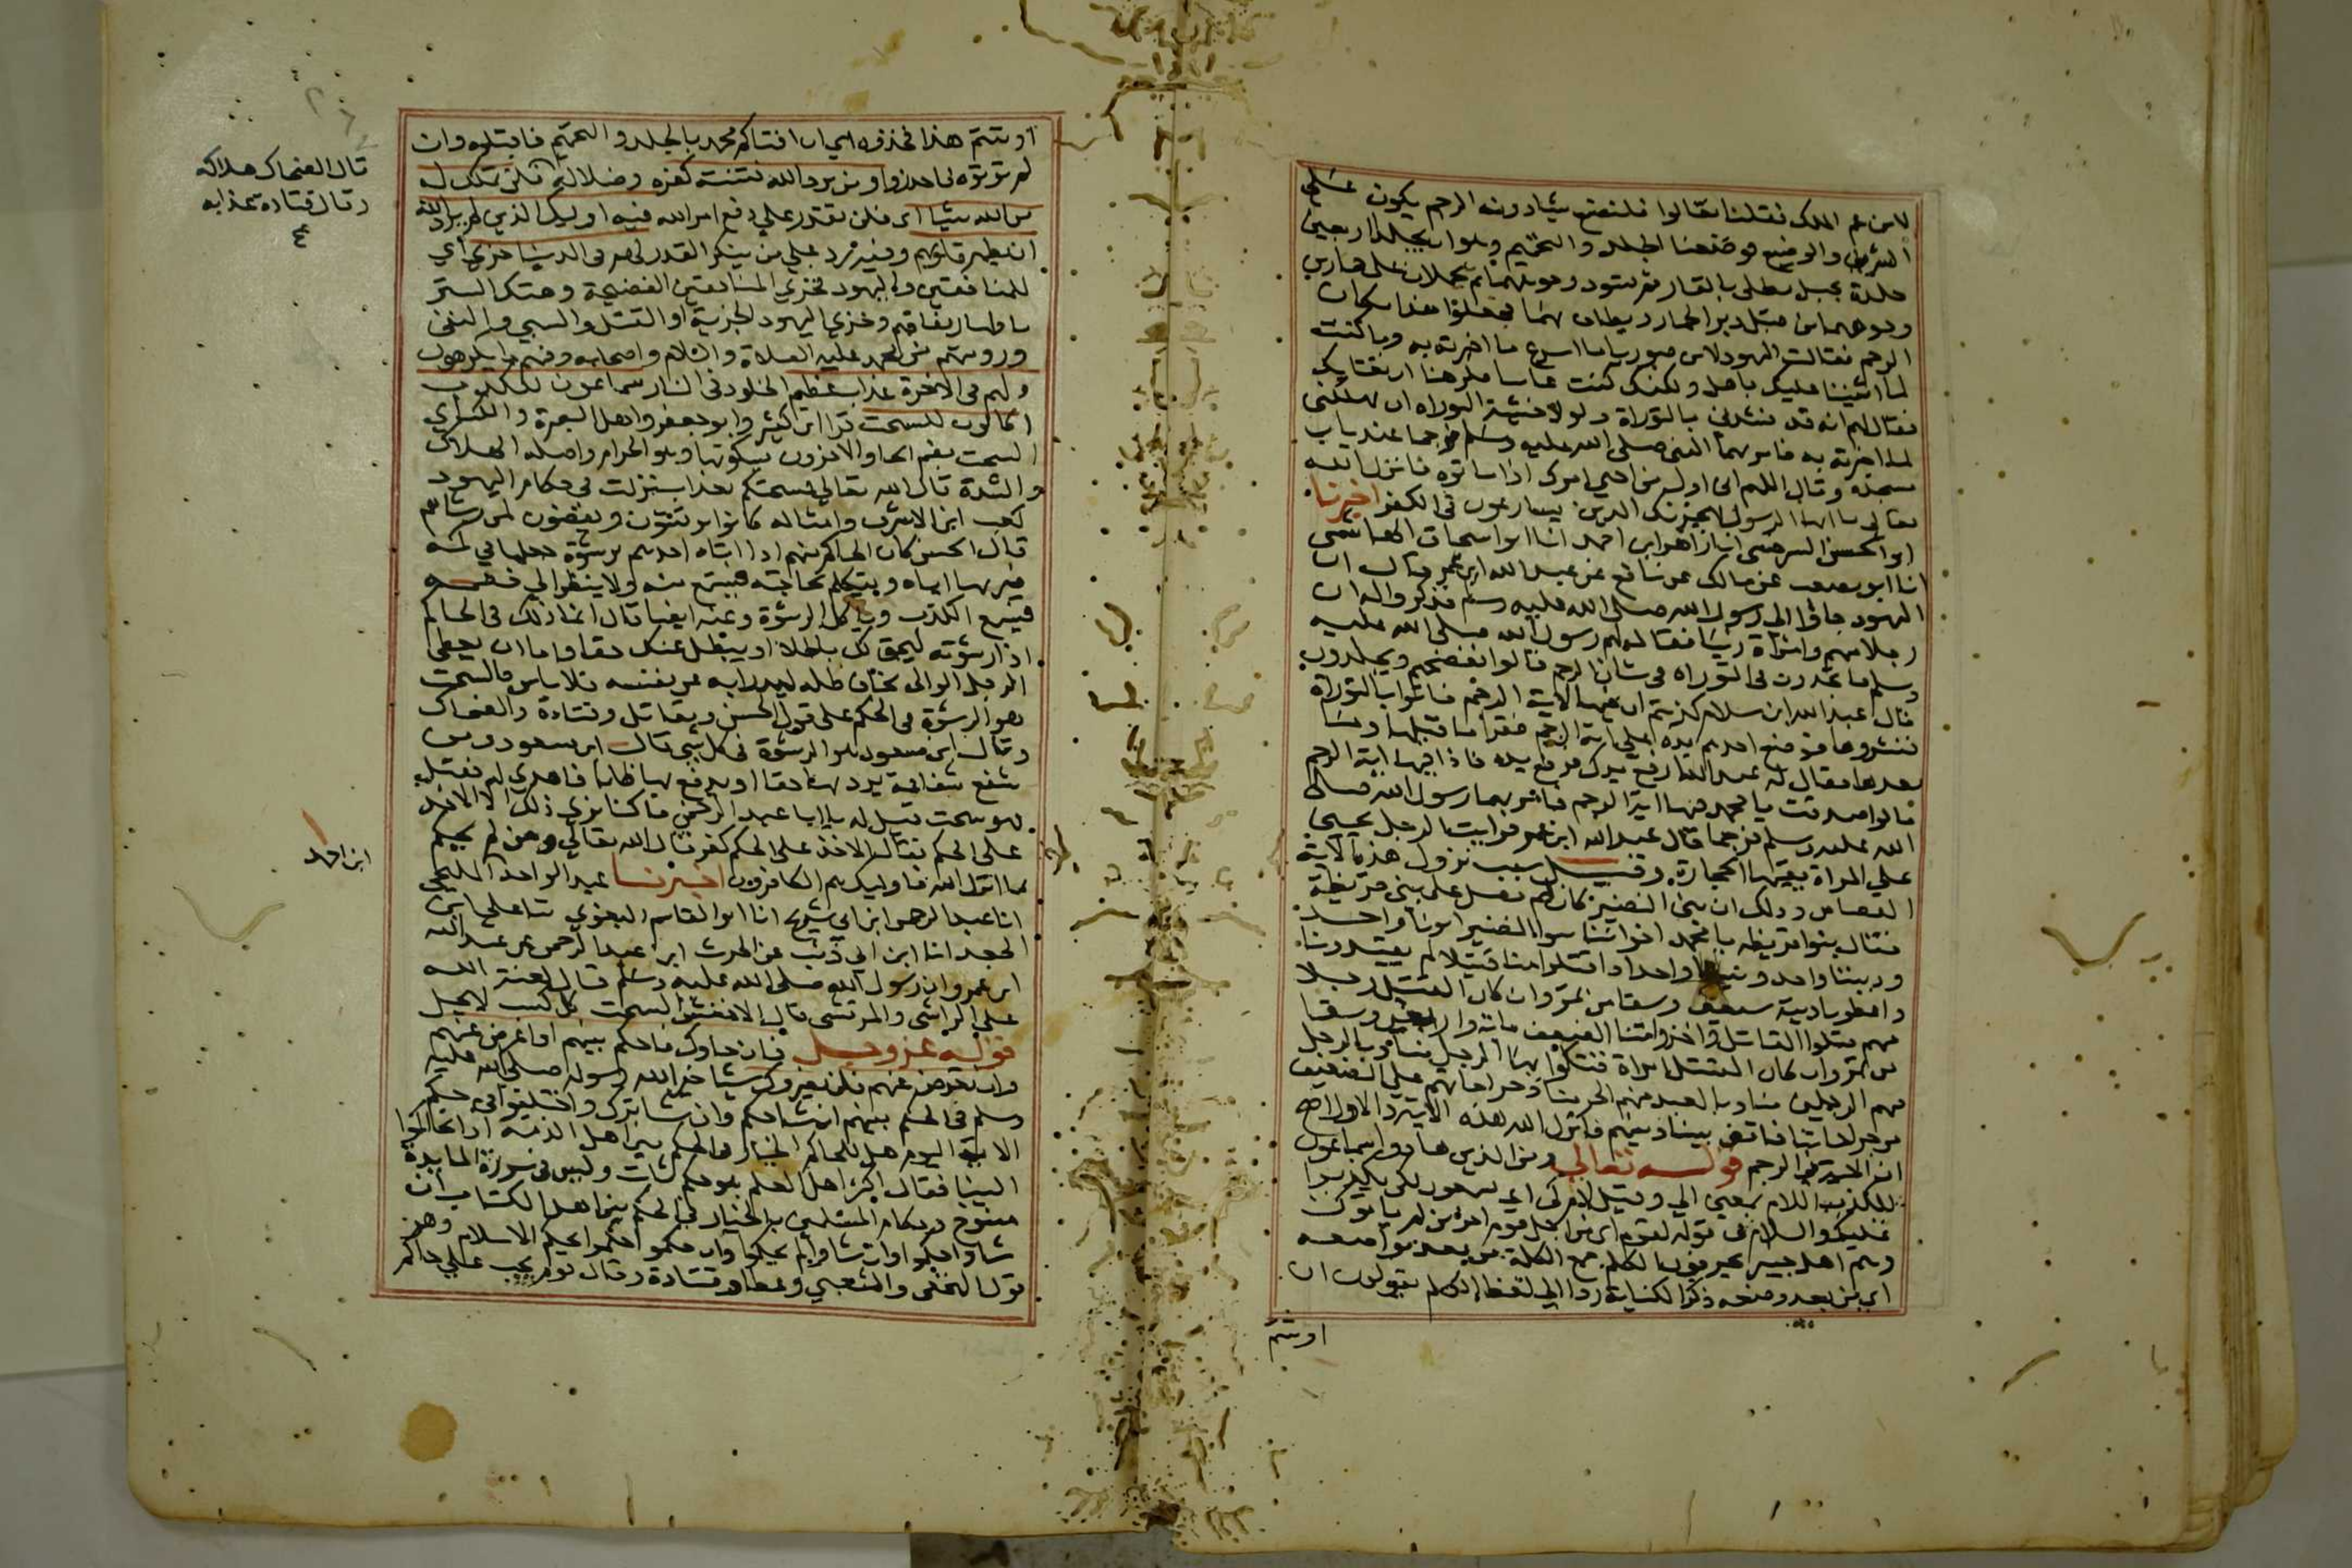 لابن عم الملك فقلنا تعالوا فلنضع شيا دون الرجم يكون على
الشريف والوضيع فوضعنا الجلد والتحميم وهو ان يجلد اربعين
جلدة بحبل مطلى بالقار ثم يسود وجوههما ثم يحملان على حمارين
وجوههما من قبل دبر الحمار ويطاف بهما فجعلوا هذا مكان
الرجم فقالت اليهود لابن صوريا ما اسرع ما اخبرته به وما كنت
لما اثنينا عليك باهل ولكنك كنت غايبا فكرهنا ان نغتابك
فقال لهم انه قد نشدنى بالتوراة ولولا خشية التوراه ان تهلكنى
لما اخبرته به فامر بهما النبى صلى الله عليه وسلم فرجما عند باب
مسجده وقال اللهم انى اول من احيى امرك اذا ماتوه فانزل الله
تعالى يا ايها الرسول لا يحزنك الذين يسارعون فى الكفر اخبرنا
ابو الحسن السرخسى انا زاهر ابن احمد انا ابو اسحاق الهاشمى
انا ابو مصعب عن مالك عن نافع عن عبد الله ابن عمر قال ان
اليهود جاؤا الى رسول الله صلى الله عليه وسلم فذكروا له ان
رجلا منهم وامراة زنيا فقال لهم رسول الله صلى الله عليه
وسلم ما تجدون فى التوراه فى شان الرجم قالوا نفضحهم ويجلدون
قال عبد الله ابن سلام كذبتم ان فيها لاية الرجم فاتوا بالتوراة
فنشروها فوضع احدهم يده على اية الرجم فقرا ما قبلها وما
بعدها فقال له عبد الله ارفع يدك فرفع يده فاذا فيها اية الرجم
قالوا صدقت يا محمد فيها اية الرجم فامر بهما رسول الله صلى
الله عليه وسلم فرجما قال عبد الله ابن عمر فرايت الرجل يحنى
على المراة يقيها الحجارة وقيل سبب نزول هذه الاية
القصاص وذلك ان بنى النضير كان لهم فضل على بنى قريظة
فقال بنوا قريظه يا محمد اخواننا بنوا النضير ابونا واحد
وديننا واحد ونبينا واحد واذا قتلوا منا قتيلا لم يقيدونا
واعطونا ديته سبعين وسقا من تمر وان كان القتيل رجلا
منهم قتلوا القاتل واخذوا منا الضعف مائة واربعين وسقا
من تمر وان كان القتيل امراة قتلوا بها الرجل منا وبالرجل
منهم الرجلين منا وبالعبد منهم الحر منا وجراحاتهم على الضعيف
من جراحاتنا فاقض بيننا وبينهم فانزل الله هذه الاية والاول اصح
ان الاية فى الرجم قوله تعالى ومن الذين هادوا سماعون
للكذب اللام بمعنى الى وقيل لام كى اى يسمعون لكى يكذبوا
عليك واللام فى قوله لقوم اى من اجل قوم اخرين لم ياتوك
وهم اهل خيبر يحرفون الكلم جمع الكلمة من بعد مواضعه
اى من بعد وضعه ذكر الكناية ردا الى لفظ الكلم يقولون ان
اوتيتم
اوتيتم هذا فخذوه اى ان افتاكم محمد بالجلد والتحميم فاقبلوه وان
لم تؤتوه فاحذروا ومن يرد الله فتنته كفره وضلالته فلن تملك له
من الله شيا اى فلن تقدر على دفع امر الله فيه اوليك الذين لم يرد الله
ان يطهر قلوبهم وفيه رد على من ينكر القدر لهم فى الدنيا خزي اى
للمنافقين واليهود فخزي المنافقين الفضيحة وهتك الستر
باظهار نفاقهم وخزي اليهود الجزية او القتل والسبي والنفى
ورويتهم من محمد عليه الصلاة والسلام واصحابه وفيهم ما يكرهون
ولهم فى الاخرة عذاب عظيم الخلود فى النار سماعون للكذب
اكالون للسحت قرا ابن كثير وابو جعفر واهل البصرة والكسائي
السحت بضم الحا والاخرون بسكونها وهو الحرام واصله الهلاك
والشدة قال الله تعالى فيسحتكم بعذاب نزلت فى حكام اليهود
كعب ابن الاشرف وامثاله كانوا يرتشون ويقضون لمن رشاهم
قال الحسن كان الحاكم منهم اذا اتاه احدهم برشوة جعلها في كمه
فيريها اياه ويتكلم بحاجته فيسمع منه ولا ينظر الي خصمه
فيسمع الكذب وياكل الرشوة وعنه ايضا قال انما ذلك فى الحاكم
اذا رشوته ليحق لك باطلا او يبطل عنك حقا واما ان يعطى
الرجل الوالى يخاف ظلمه ليدرا به عن نفسه فلا باس فالسحت
هو الرشوة فى الحكم على قول الحسن ومقاتل وقتادة والضحاك
وقال ابن مسعود هو الرشوة فى كل شى قال ابن مسعود من
شفع شفاعة يرد بها حقا او يدفع بها ظلما فاهدي له فقبل
فهو سحت قيل له يا ابا عبد الرحمن ما كنا نرى ذلك الا الاخذ
على الحكم فقال الاخذ على الحكم كفر قال الله تعالى ومن لم يحكم
بما انزل الله فاوليك هم الكافرون اخبرنا عبد الواحد المليحى
انا عبد الرحمن ابن ابى شريح انا ابو القاسم البغوي ثنا على ابن
الجعد انا ابن ابى ذئب عن الحرث ابن عبد الرحمن عن عبد الله
ابن عمرو ان رسول الله صلى الله عليه وسلم قال لعنة الله
على الراشى والمرتشى قال الاخفش السحت كل كسب لا يحل
قوله عز وجل فان جاوك فاحكم بينهم او اعرض عنهم
وان تعرض عنهم فلن يضروك شيا خير الله رسوله صلى الله عليه
وسلم فى الحكم بينهم ان شا حكم وان شا ترك واختلفوا فى حكم
الاية اليوم هل للحاكم الخيار فى الحكم بين اهل الذمة اذا تحاكموا
الينا فقال اكثر اهل العلم هو حكم ثابت وليس فى سورة المايدة
منسوخ وحكام المسلمين بالخيار فى الحكم بين اهل الكتاب ان
شاوا حكموا وان شاوا لم يحكموا وان حكموا حكموا بحكم الاسلام وهو
قول النخعى والشعبي وعطا وقتادة وقال قوم يجب على حاكم
قال الضحاك هلاكه
وقال قتاده عذابه
ابن احمد